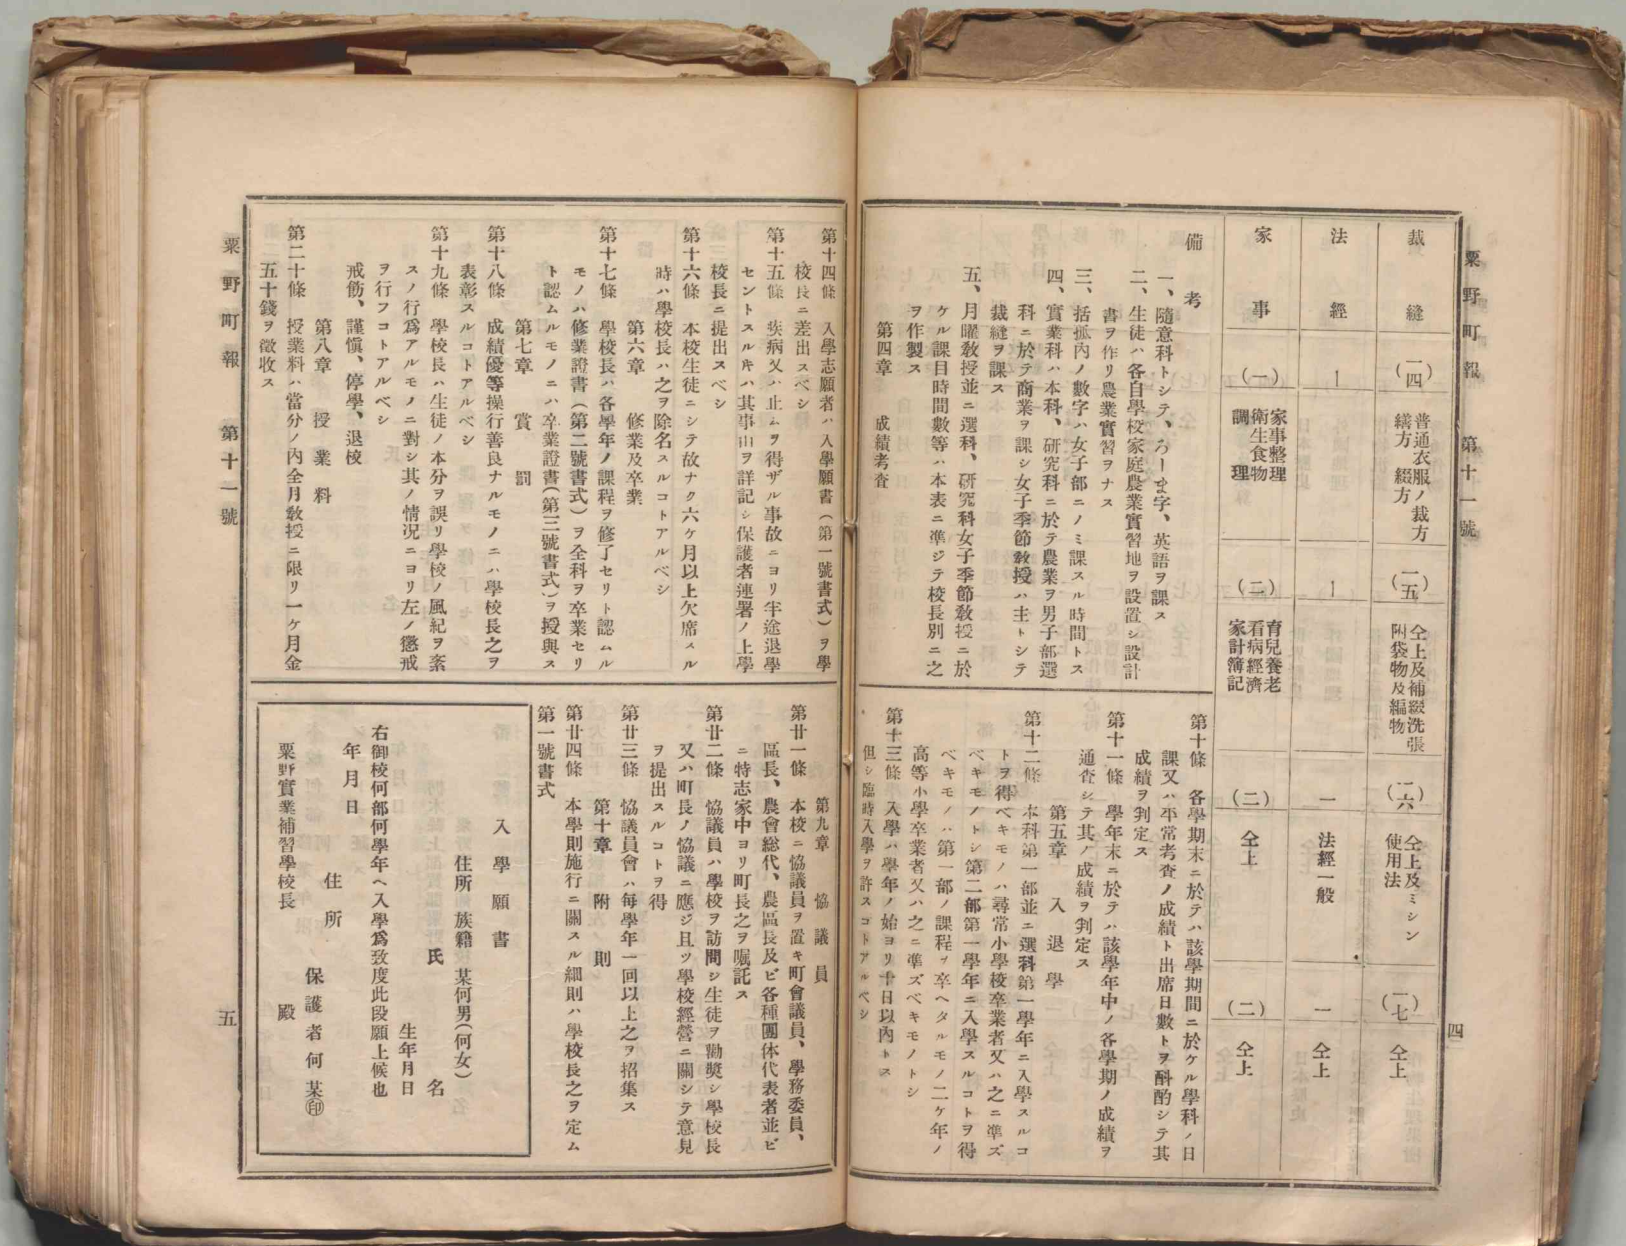 粟野町報　第十一號
四
裁縫
（一四）
普通衣服ノ裁方
繕方　綴方
（一五）
仝上及補綴洗張
附袋物及編物
（一六）
仝上及ミシン
使用法
（一七）
仝上
法經
｜
｜
一
法經一般
一
仝上
家事
（一）
家事整理
衛生食物
調理
（二）
育兒養老
看病經濟
家計簿記
（二）
仝上
（二）
仝上
備考
一、隨意科トシテ、ろーま字、英語ヲ課ス
二、生徒ハ各自學校家庭農業實習地ヲ設置シ設計
書ヲ作リ農業實習ヲナス
三、括孤內ノ數字ハ女子部ニノミ課スル時間トス
四、實業科ハ本科、硏究科ニ於テ農業ヲ男子部選
科ニ於テ商業ヲ課シ女子季節敎授ハ主トシテ
裁縫ヲ課ス
五、月曜敎授並ニ選科、硏究科女子季節敎授ニ於
ケル課目時間數等ハ本表ニ準ジテ校長別ニ之
ヲ作製ス
第四章　成績考査
第十條　各學期末ニ於テハ該學期間ニ於ケル學科ノ日
課又ハ平常考査ノ成績ト出席日數トヲ斟酌シテ其
成績ヲ判定ス
第十一條　學年末ニ於テハ該學年中ノ各學期ノ成績ヲ
通査シテ其ノ成績ヲ判定ス
第五章　入退學
第十二條　本科第一部並ニ選科第一學年ニ入學スルコ
トヲ得ベキモノハ尋常小學校卒業者又ハ之ニ準ズ
ベキモノトシ第二部第一學年ニ入學スルコトヲ得
ベキモノハ第一部ノ課程ヲ卒ヘタルモノ二ケ年ノ
高等小學卒業者又ハ之ニ準ズベキモノトシ
第十三條　入學ハ學年ノ始ヨリ十日以內トス
但シ臨時入學ヲ許スコトアルベシ
第十四條　入學志願者ハ入學願書（第一號書式）ヲ學
校長ニ差出スベシ
第十五條　疾病又ハ止ムヲ得ザル事故ニヨリ半途退學
セントスルトキハ其事由ヲ詳記シ保護者連署ノ上學
校長ニ提出スベシ
第十六條　本校生徒ニシテ故ナク六ケ月以上欠席スル
時ハ學校長ハ之ヲ除名スルコトアルベシ
第六章　修業及卒業
第十七條　學校長ハ各學年ノ課程ヲ修了セリト認ムル
モノハ修業證書（第二號書式）ヲ全科ヲ卒業セリ
ト認ムルモノニハ卒業證書（第三號書式）ヲ授與ス
第七章　賞罰
第十八條　成績優等操行善良ナルモノニハ學校長之ヲ
表彰スルコトアルベシ
第十九條　學校長ハ生徒ノ本分ヲ誤リ學校ノ風紀ヲ紊
スノ行爲アルモノニ對シ其ノ情況ニヨリ左ノ懲戒
ヲ行フコトアルベシ
戒飭、謹愼、停學、退校
第八章　授業料
第二十條　授業料ハ當分ノ內全月敎授ニ限リ一ケ月金
五十錢ヲ徵收ス
第九章　協議員
第廿一條　本校ニ協議員ヲ置キ町會議員、學務委員、
區長、農會總代、農區長及ビ各種團体代表者並ビ
ニ特志家中ヨリ町長之ヲ囑託ス
第廿二條　協議員ハ學校ヲ訪問シ生徒ヲ勸奬シ學校長
又ハ町長ノ協議ニ應ジ且ツ學校經營ニ關シテ意見
ヲ提出スルコトヲ得
第廿三條　協議員會ハ每學年一回以上之ヲ招集ス
第十章　附則
第廿四條　本學則施行ニ關スル細則ハ學校長之ヲ定ム
第一號書式
入學願書
住所　族籍　某何男（何女）
氏名
生年月日
右御校何部何學年ヘ入學爲致度此段願上候也
年月日
住所
保護者何某㊞
粟野實業補習學校長　殿
粟野町報　第十一號
五